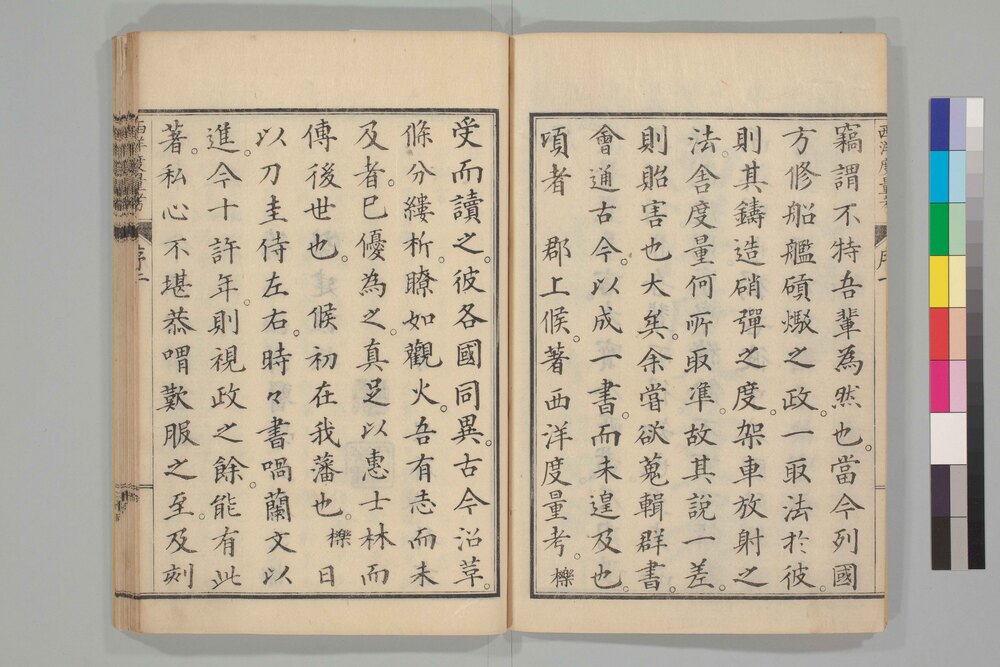 竊謂不特吾輩為然也。當今列國
方修船艦礮熕之政。一取法於彼。
則其鑄造硝彈之度。架車放射之
法。舍度量何所取準。故其說一差。
則貽害也大矣。余嘗欲蒐輯群書。
會通古今。以成一書。而未遑及也。
項者 郡上候。著西洋度量考。櫟
受而讀之。彼各國同異。古今沿革。
條分縷析。瞭如觀火。吾有志而未
及者。已優為之。真足以惠士林而
傳後世也。候初在我藩也。櫟日
以刀圭侍左右。時々書喎蘭文以
進。今十許年。則視政之餘。能有此
著。私心不堪恭喟歎服之至。及刻
序一
序二